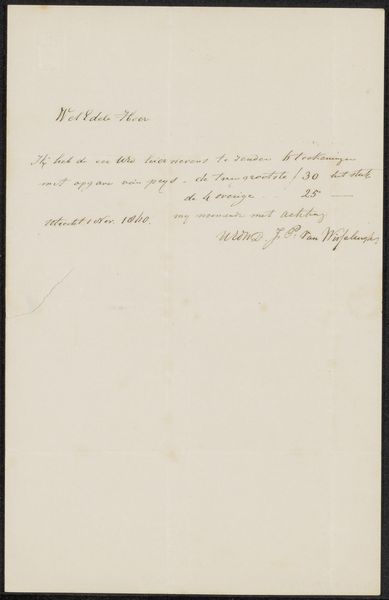 Wel Edele Heer
Ik heb de eer UEd hier nevens te zenden teekeningen
met opgave van prys. de twee grootste f 30 het stuk
de 4 overige - - 25 —
Utrecht 1 Nov. 1840. my noemende met achting
UEdWD. J. P. van Wisselingh